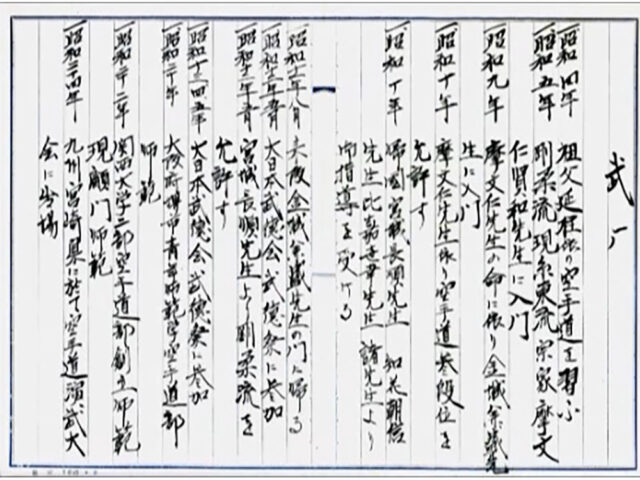 武歴
一昭和四年 祖父延程依り空手道を習ふ
一昭和五年 剛柔流現糸東流宗家摩文
仁賢和先生に入門
一昭和九年 摩文仁先生の命に依り金城兼盛先
生に入門
一昭和十年 摩文仁先生依り空手道参段位を
允許す
一昭和十年 帰国宮城長順先生 知花朝信
先生比嘉世幸先生 諸先生より
御指導を受ける
一昭和十一年八月 大阪金城兼盛先生の門に帰る
一昭和 大日本武徳会武徳祭に参加
一昭和 宮城長順先生より剛柔流を
允許す
一昭和十三四五年 大日本武徳会武徳祭に参加
一昭和二十年 大阪府 市青年師範学 空手道部
師範
一昭和二十二年 関西大学二部空手道部創立師範
現顧問師範
一昭和二十四年 九州宮崎県に於て空手道演武大
会に出場